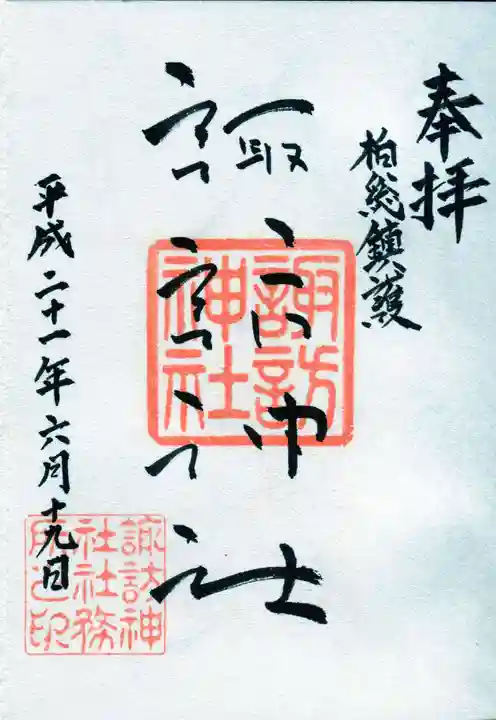 奉拝
柏総鎮護
諏訪神社
諏訪神社
平成二十一年六月十九日
諏訪神社社務所之印